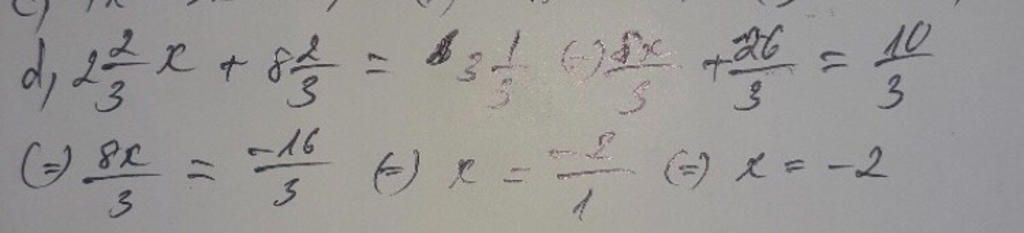 d, 2 2/3 x + 8 2/3 = 3 1/3 (=) 8x/3 + 26/3 = 10/3
(=) 8x/3 = -16/3 (=) x = -2/1 (=) x = -2